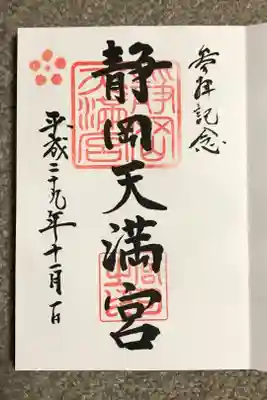 参拝記念
静岡天満宮
平成二十九年十一月一日